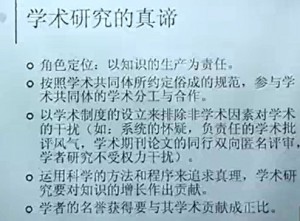 学术研究的真谛
○ 角色定位：以知识的生产为责任。
○ 按照学术共同体所约定俗成的规范，参与学
术共同体的学术分工与合作。
○ 以学术制度的设立来排除非学术因素对学术
的干扰（如：系统的怀疑，负责任的学术批
评风气，学术期刊论文的同行双向匿名评审，
学者研究不受权力干扰）。
○ 运用科学的方法和程序来追求真理，学术研
究要对知识的增长作出贡献。
○ 学者的名誉获得要与其学术贡献成正比。